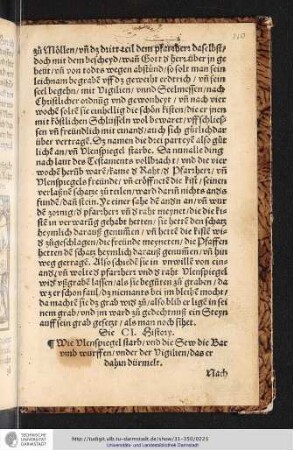 zů Möllen / vñ dz dritt teil dem pfarrherr daselbst /
doch mit dem bescheyd / wañ Gott d̕ herr über jn ge
beut / vñ von todts wegen abstünd / so solt man sein
leichnam begrabē vff dz geweiht erdtrich / vñ sein
seel begehn / mit Vigilien / vnnd Seelmessen / nach
Christlicher ordnũg vnd gewonheyt / vñ nach vier
wochē soltē sie einhellig die schön kistē / die er jnen
mit köstlichen Schlüsseln wol bewaret / vffschliess
sen vñ freündtlich mit einand̕ / auch sich gütlichdar
über vertragē. Sz namen die drei parteyē also gütt
lichē an / vñ Vlenspiegel starbe. Da nun alle ding
nach laut des Testaments vollbracht / vnd die vier
wochē herũb warē / kame d̕ Raht / d̕ Pfarrherr / vñ
Vlenspiegels freünde / vñ eröffnetē die kist / seinen
verlaßnē schatz zů teilen / ward darñ nichts anders
funde / dañ stein. Ye einer sahe dē andn an / vñ wur
dē zornig / d̕ pfarrherr vñ d̕ raht meynet / die die kis
stē in verwarũg gehabt hetten / sie hetē den schatz
heymlich darauß genum̃en / vñ hettē die kistē wis
d̕ zůgeschlagen / die freünde meyneten / die Pfaffen
hetten dē schatz heymlich darauß genum̃en / vñ hin
weg getragē. Also schiedē sie in vnwillē von eins
and̕ / vñ woltē d̕ pfarrherr vnd d̕ raht Vlenspiegel
wid̕ vßgrabē lassen / als sie begüten zů graben / da
wz er schon faul / dz niemants bei im bleibē mocht /
da machtē sie dz grab wid̕ zů / also blib er ligē in sei
nem grab / vnd jm ward zů gedechtnuß ein Steyn
auff sein grab gesetzt / als man noch sihet.
Die CL. History.
¶ Wie Vlenspiegel starb / vnd die Sew die Bar
vmb wurffen / vnder der Vigilien / das er
dahin dürmelt.
Nach
TECHNISCHE
UNIVERSITÄT
DARMSTADT
http://tudigit.ulb.tu-darmstadt.de/show/31-350/0221
Universitäts- und Landesbibliothek Darmstadt